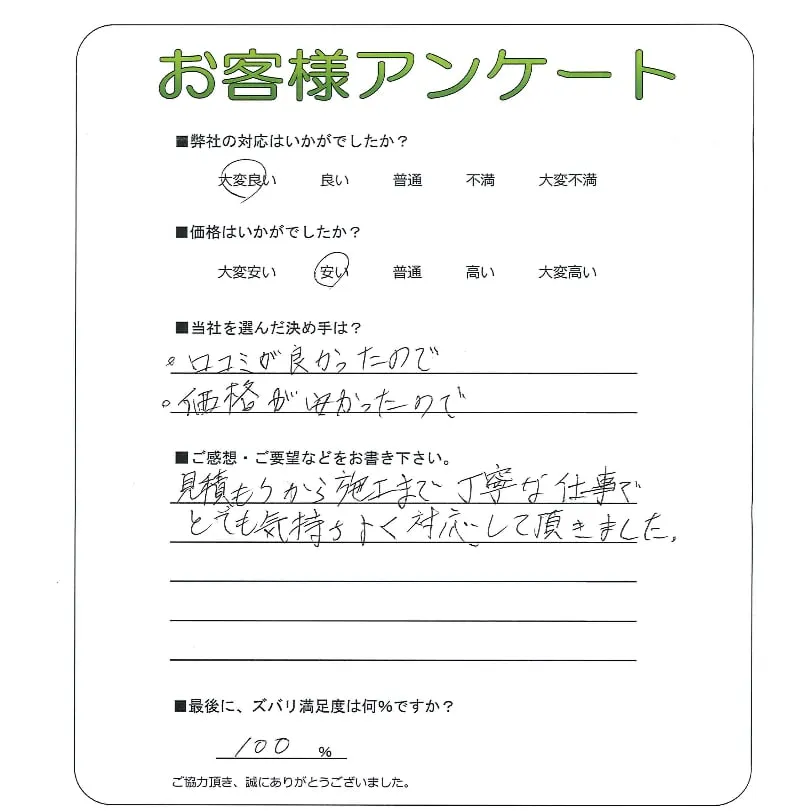 お客様アンケート
■弊社の対応はいかがでしたか？
大変良い 良い 普通 不満 大変不満
■価格はいかがでしたか？
大変安い 安い 普通 高い 大変高い
■当社を選んだ決め手は？
。口コミが良かったので
。価格が安かったので
■ご感想・ご要望などをお書き下さい。
見積もりから施工まで丁寧な仕事で
とても気持ちよく対応して頂きました。
■最後に、ズバリ満足度は何%ですか？
100 %
ご協力頂き、誠にありがとうございました。